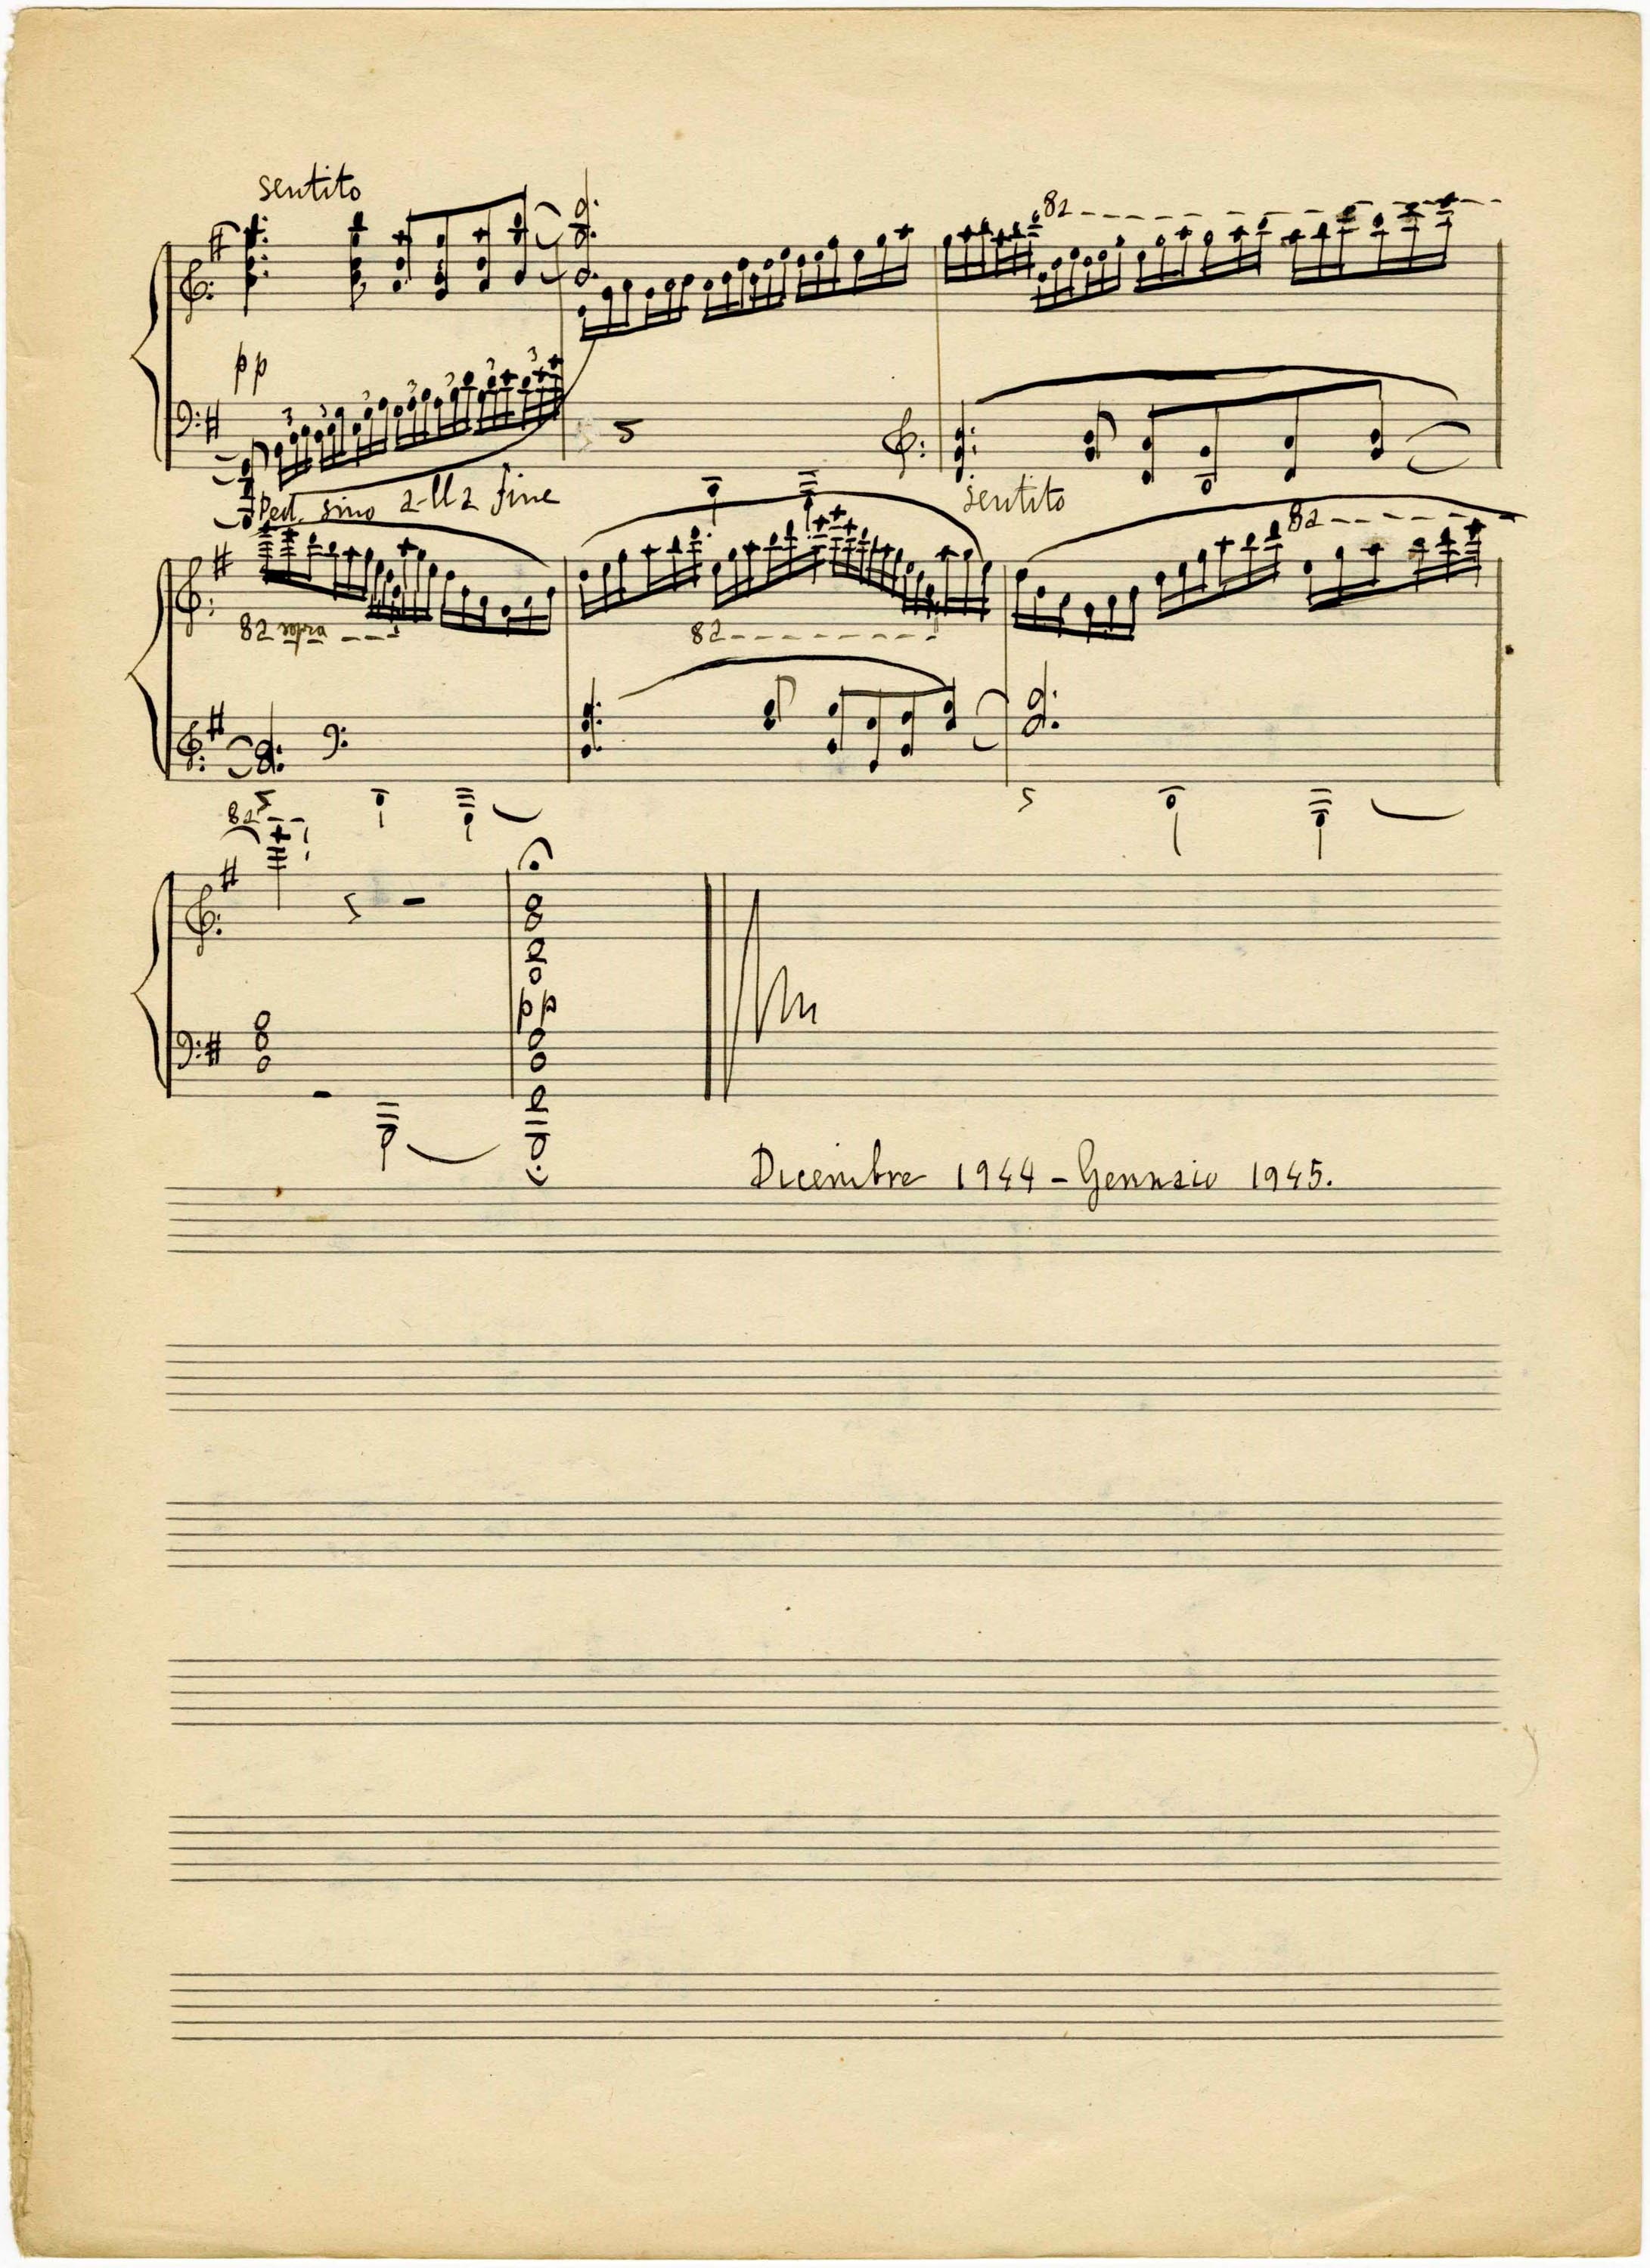 sentito
8a
pp
3 3 3 3 3 3 3
Ped. sino alla fine
sentito
8a
8a sopra
8a
8a
pp
Dicembre 1944 - Gennaio 1945.